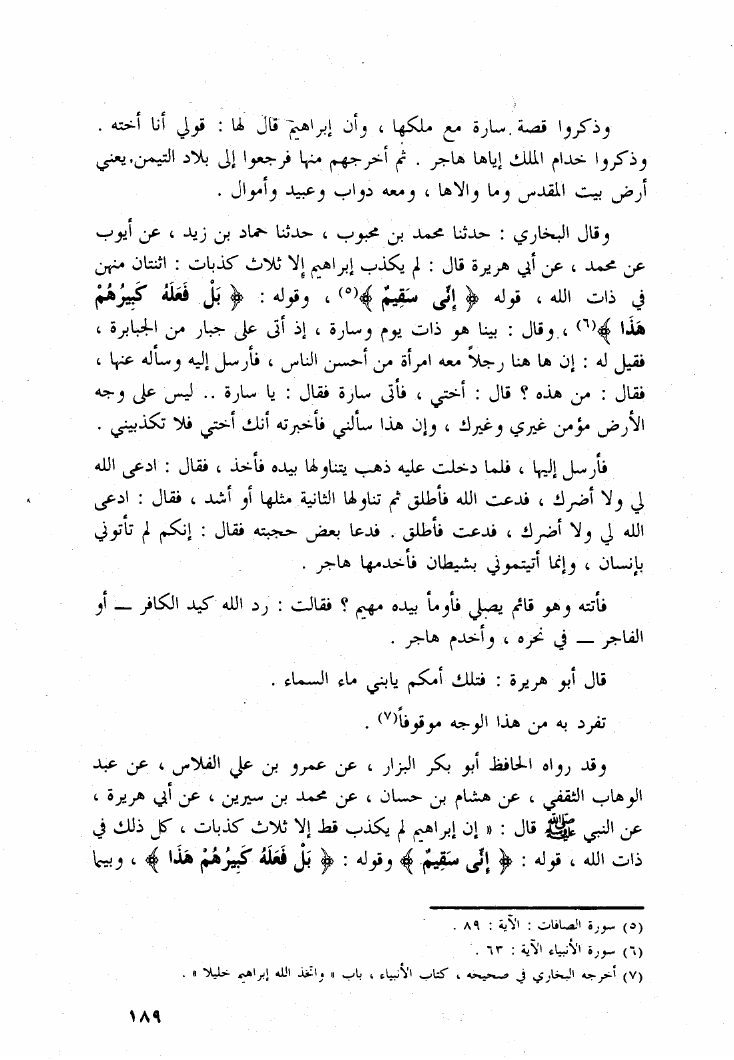 وذكروا قصة سارة مع ملكها ، وأن إبراهيم قال لها : قولي أنا أخته .
وذكروا خدام الملك إياها هاجر . ثم أخرجهم منها فرجعوا إلى بلاد التيمن ، يعني
أرض بيت المقدس وما والاها ، ومعه دواب وعبيد وأموال .
وقال البخاري : حدثنا محمد بن محبوب ، حدثنا حماد بن زيد ، عن أيوب
عن محمد ، عن أبي هريرة قال : لم يكذب إبراهيم إلا ثلاث كذبات : اثنتان منهن
في ذات الله ، قوله ﴿ إِنِّي سَقِيمٌ ﴾(٥) ، وقوله : ﴿ بَلْ فَعَلَهُ كَبِيرُهُمْ
هَذَا ﴾(٦) ، وقال : بينا هو ذات يوم وسارة ، إذ أتى على جبار من الجبابرة ،
فقيل له : إن ها هنا رجلاً معه امرأة من أحسن الناس ، فأرسل إليه وسأله عنها ،
فقال : من هذه ؟ قال : أختي ، فأتى سارة فقال : يا سارة .. ليس على وجه
الأرض مؤمن غيري وغيرك ، وإن هذا سألني فأخبرته أنك أختي فلا تكذبيني .
فأرسل إليها ، فلما دخلت عليه ذهب يتناولها بيده فأخذ ، فقال : ادعى الله
لي ولا أضرك ، فدعت الله فأطلق ثم تناولها الثانية مثلها أو أشد ، فقال : ادعى
الله لي ولا أضرك ، فدعت فأطلق . فدعا بعض حجبته فقال : إنكم لم تأتوني
بإنسان ، وإنما أتيتموني بشيطان فأخدمها هاجر .
فأتته وهو قائم يصلي فأومأ بيده مهيم ؟ فقالت : رد الله كيد الكافر — أو
الفاجر — في نحره ، وأخدم هاجر .
قال أبو هريرة : فتلك أمكم يابني ماء السماء .
تفرد به من هذا الوجه موقوفاً(٧) .
وقد رواه الحافظ أبو بكر البزار ، عن عمرو بن علي الفلاس ، عن عبد
الوهاب الثقفي ، عن هشام بن حسان ، عن محمد بن سيرين ، عن أبي هريرة ،
عن النبي ﷺ قال : « إن إبراهيم لم يكذب قط إلا ثلاث كذبات ، كل ذلك في
ذات الله ، قوله : ﴿ إِنِّي سَقِيمٌ ﴾ وقوله : ﴿ بَلْ فَعَلَهُ كَبِيرُهُمْ هَذَا ﴾ ، وبينما
(٥) سورة الصافات : الآية : ٨٩ .
(٦) سورة الأنبياء الآية : ٦٣ .
(٧) أخرجه البخاري في صحيحه ، كتاب الأنبياء ، باب « واتخذ الله إبراهيم خليلا » .
١٨٩